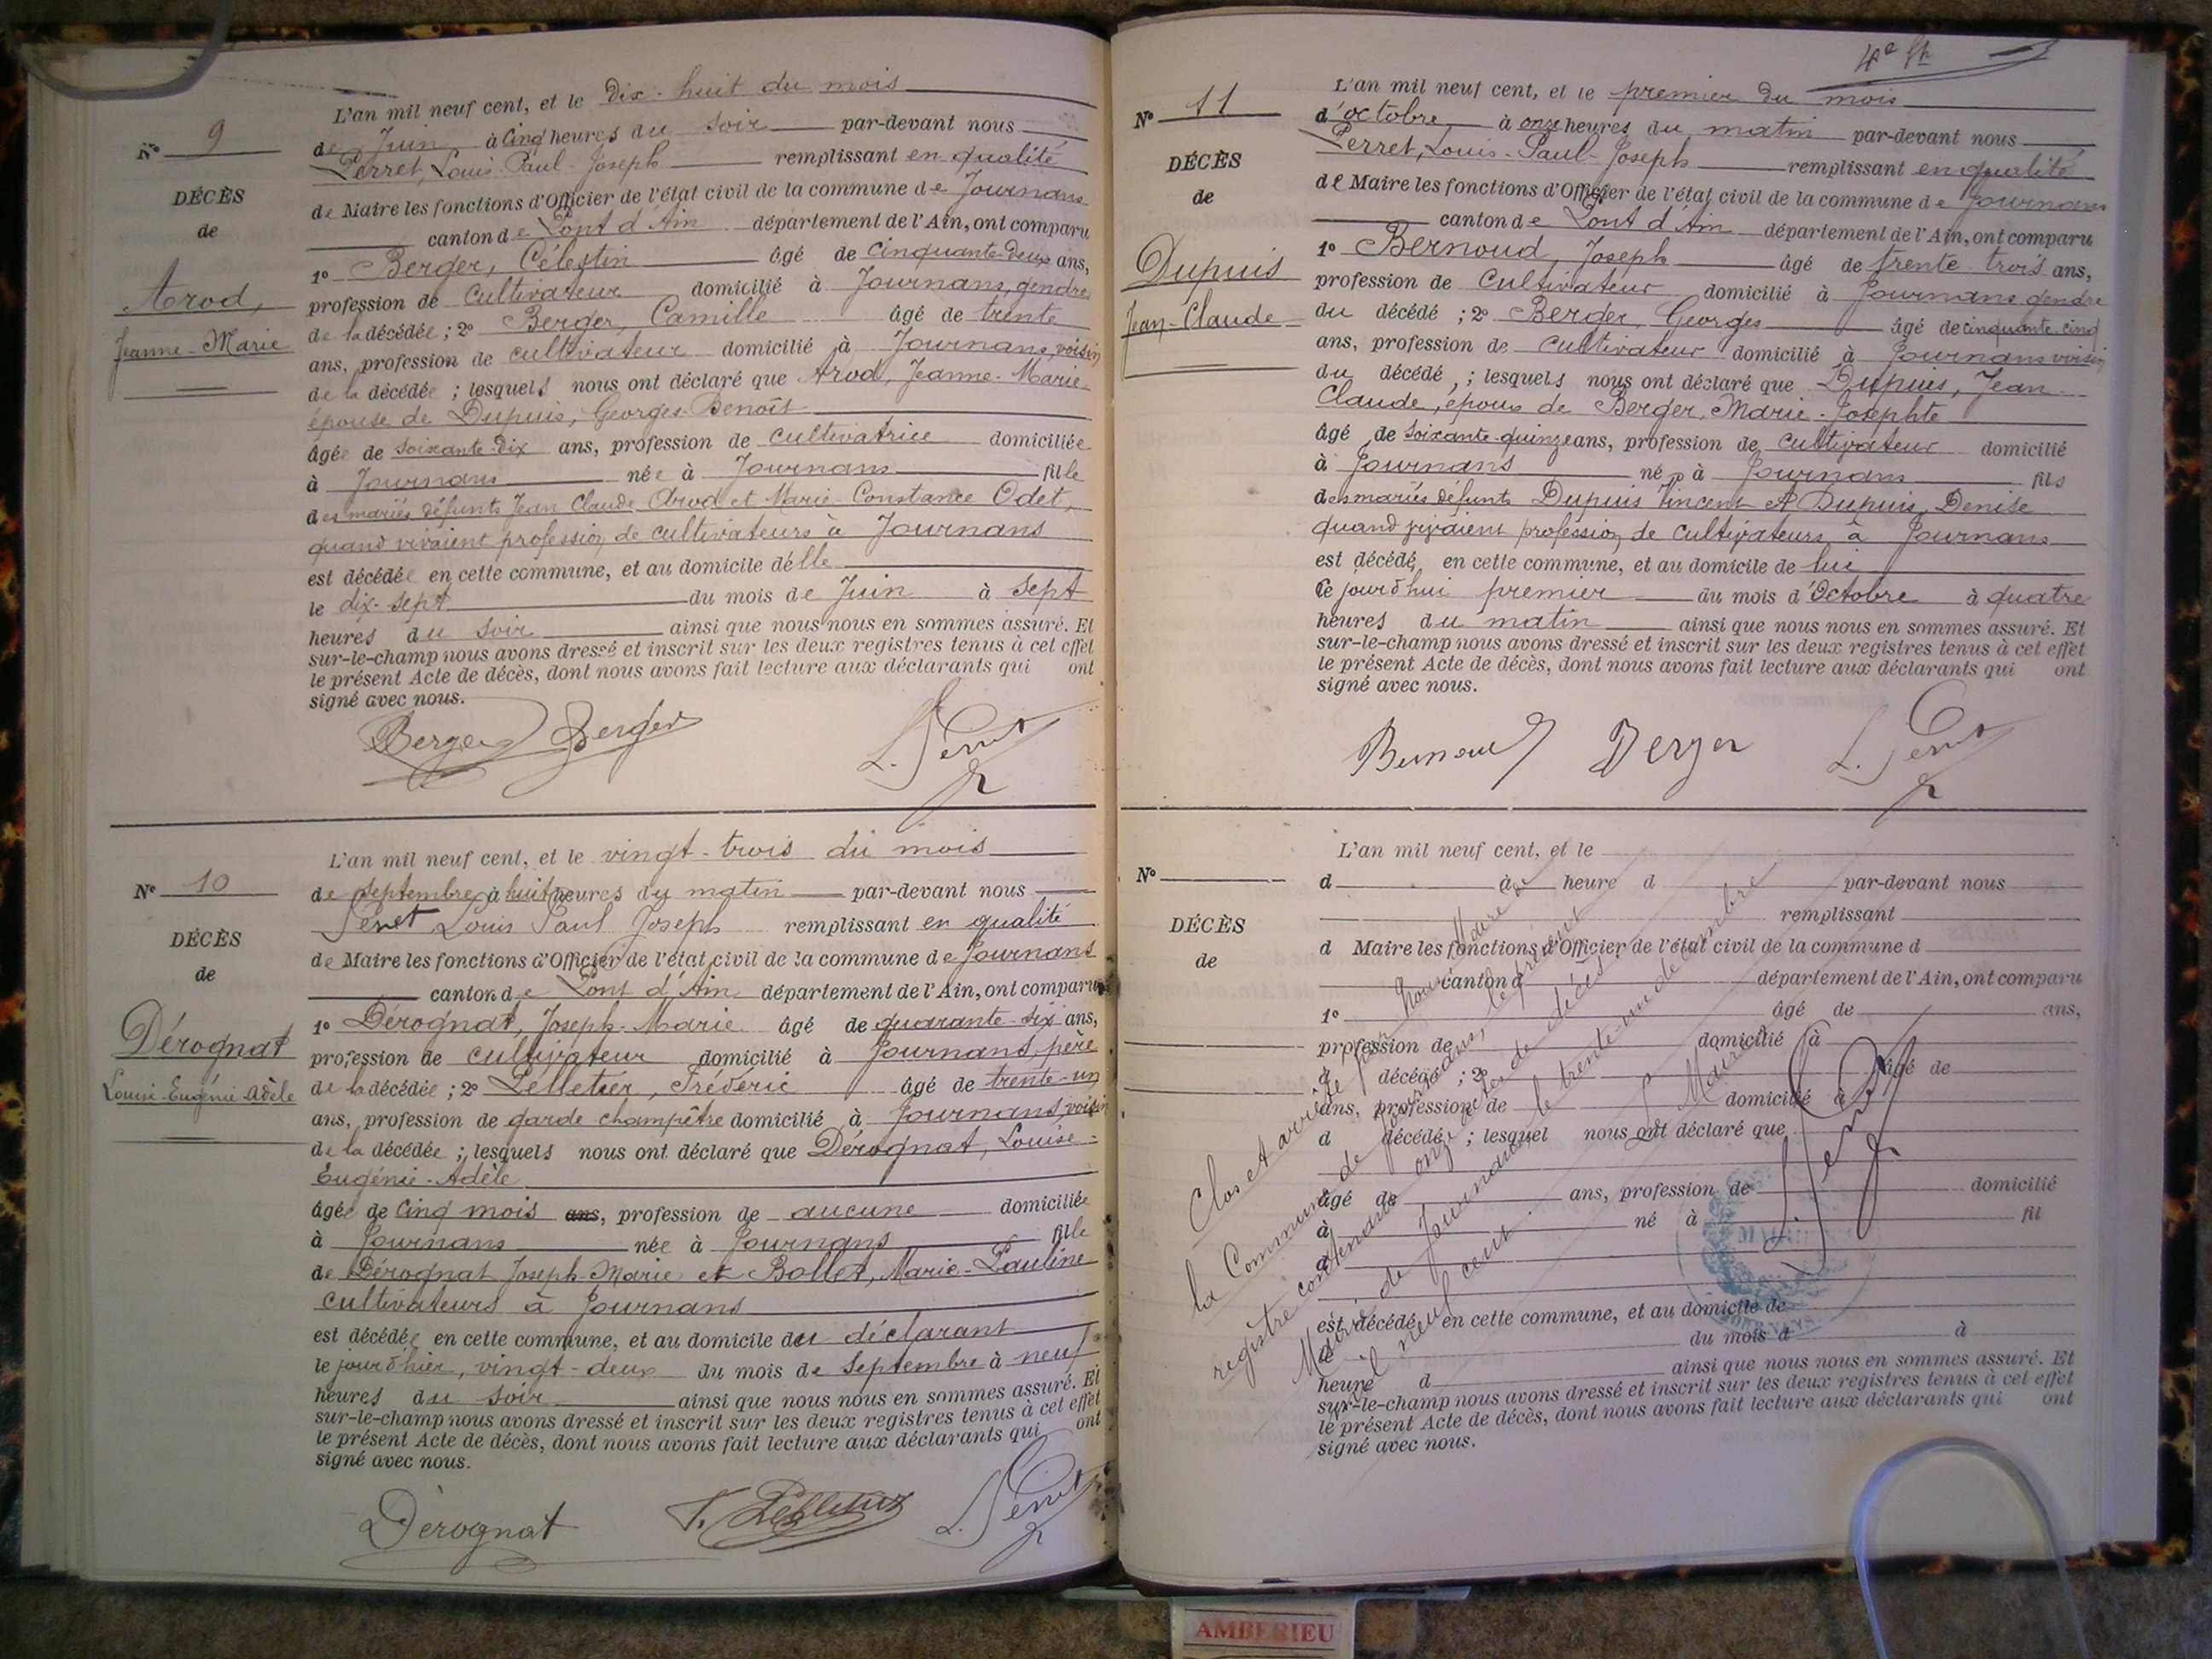 L'an mil neuf cent, et le dix-huit du mois
de Juin à cinq heures du soir par-devant nous
Perret, Louis-Paul-Joseph remplissant en qualité
de Maire les fonctions d'Officier de l'état civil de la commune de Journans
canton de Pont d'Ain département de l'Ain, ont comparu
1º Berger, Célestin âgé de cinquante-deux ans,
profession de cultivateur domicilié à Journans, gendre
de la décédée ; 2º Berger, Camille âgé de trente
ans, profession de cultivateur domicilié à Journans, voisin
de la décédée ; lesquels nous ont déclaré que Arod, Jeanne-Marie
épouse de Dupuis, Georges-Benoît
âgée de soixante-dix ans, profession de cultivatrice domiciliée
à Journans née à Journans fille
des mariés défunts Jean Claude Arod et Marie-Constance Odet,
quand vivaient profession de cultivateurs à Journans
est décédée en cette commune, et au domicile d'elle
le dix-sept du mois de Juin à sept
heures du soir ainsi que nous nous en sommes assuré. Et
sur-le-champ nous avons dressé et inscrit sur les deux registres tenus à cet effet
le présent Acte de décès, dont nous avons fait lecture aux déclarants qui ont
signé avec nous.
Nº 9
DÉCÈS
de
Arod,
Jeanne-Marie
Berger Berger L. Perret
L'an mil neuf cent, et le vingt-trois du mois
Nº 10
de septembre à huit heures du matin par-devant nous
Perret Louis Paul Joseph remplissant en qualité
DÉCÈS
de Maire les fonctions d'Officier de l'état civil de la commune de Journans
de
canton de Pont d'Ain département de l'Ain, ont comparu
1º Dérognat, Joseph-Marie âgé de quarante-six ans,
Dérognat
Louise-Eugénie-Adèle
profession de cultivateur domicilié à Journans, père
de la décédée ; 2º Pelletier, Frédéric âgé de trente-un
ans, profession de garde champêtre domicilié à Journans, voisin
de la décédée ; lesquels nous ont déclaré que Dérognat, Louise-
Eugénie-Adèle
âgée de cinq mois ans, profession de aucune domiciliée
à Journans née à Journans fille
de Dérognat Joseph-Marie et Bollet, Marie-Pauline
cultivateurs à Journans
est décédée en cette commune, et au domicile du déclarant
le jour d'hier, vingt-deux du mois de Septembre à neuf
heures du soir ainsi que nous nous en sommes assuré. Et
sur-le-champ nous avons dressé et inscrit sur les deux registres tenus à cet effet
le présent Acte de décès, dont nous avons fait lecture aux déclarants qui ont
signé avec nous.
Dérognat F. Pelletier L. Perret
L'an mil neuf cent, et le premier du mois
Nº 11
d'octobre à onze heures du matin par-devant nous
Perret, Louis-Paul-Joseph remplissant en qualité
DÉCÈS
de
de Maire les fonctions d'Officier de l'état civil de la commune de Journans
canton de Pont d'Ain département de l'Ain, ont comparu
1º Bernoud, Joseph âgé de trente trois ans,
Dupuis
Jean-Claude
profession de cultivateur domicilié à Journans gendre
du décédé ; 2º Berger, Georges âgé de cinquante-cinq
ans, profession de cultivateur domicilié à Journans voisin
du décédé ; lesquels nous ont déclaré que Dupuis, Jean
Claude, époux de Berger, Marie-Josephte
âgé de soixante-quinze ans, profession de cultivateur domicilié
à Journans né à Journans fils
des mariés défunts Dupuis Vincent et Dupuis, Denise
quand vivaient profession de cultivateurs à Journans
est décédé en cette commune, et au domicile de lui
ce jourd'hui premier du mois d'Octobre à quatre
heures du matin ainsi que nous nous en sommes assuré. Et
sur-le-champ nous avons dressé et inscrit sur les deux registres tenus à cet effet
le présent Acte de décès, dont nous avons fait lecture aux déclarants qui ont
signé avec nous.
Bernoud Berger L. Perret
L'an mil neuf cent, et le
Nº
d à heure d par-devant nous
remplissant
DÉCÈS
de
d Maire les fonctions d'Officier de l'état civil de la commune d
canton d département de l'Ain, ont comparu
1º âgé de ans,
profession de domicilié à
d décédé ; 2º âgé de
ans, profession de domicilié à
d décédé ; lesquel nous ont déclaré que
âgé de ans, profession de domicilié
à né à fil
d
est décédé en cette commune, et au domicile de
le du mois d à
heure d ainsi que nous nous en sommes assuré. Et
sur-le-champ nous avons dressé et inscrit sur les deux registres tenus à cet effet
le présent Acte de décès, dont nous avons fait lecture aux déclarants qui ont
signé avec nous.
Clos et arrêté par nous Maire de
la Commune de Journans, le présent
registre contenant onze actes de décès
Mairie de Journans, le trente-un décembre
mil neuf cent.
Le Maire
L. Perret
AMBERIEU